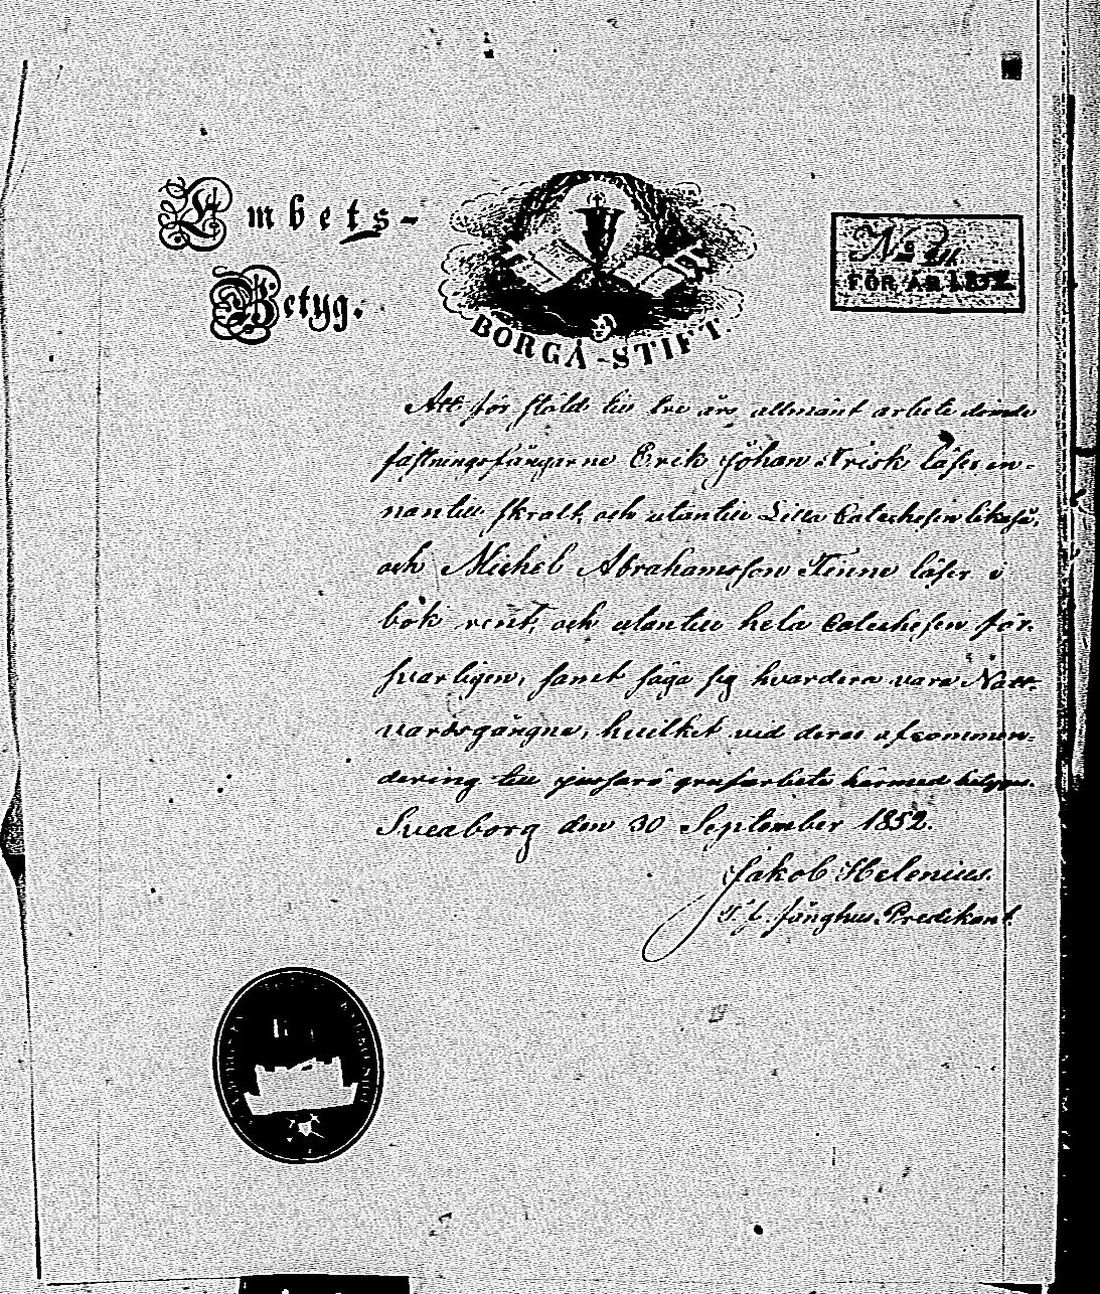 Embets-
Betyg.
BORGÅ-STIFT.
No
FÖR ÅR 1852
Att för stöld till tre års allmänt arbete dömde
fästningsfångarne Erik Johan Frisk läser in-
nantill skralt, och utantill Lilla Catechesen likaså,
och Michel Abrahamsson läser i
bok rent, och utantill hela Catechesen för-
svarligen, samt säga sig hvardera vara Natt-
vardsgångne, hvilket vid deras afcommen-
dering till grufarbete härmed betygas.
Sveaborg den 30 September 1852.
Jakob Helenius
T. f. Fånghus Predikant.